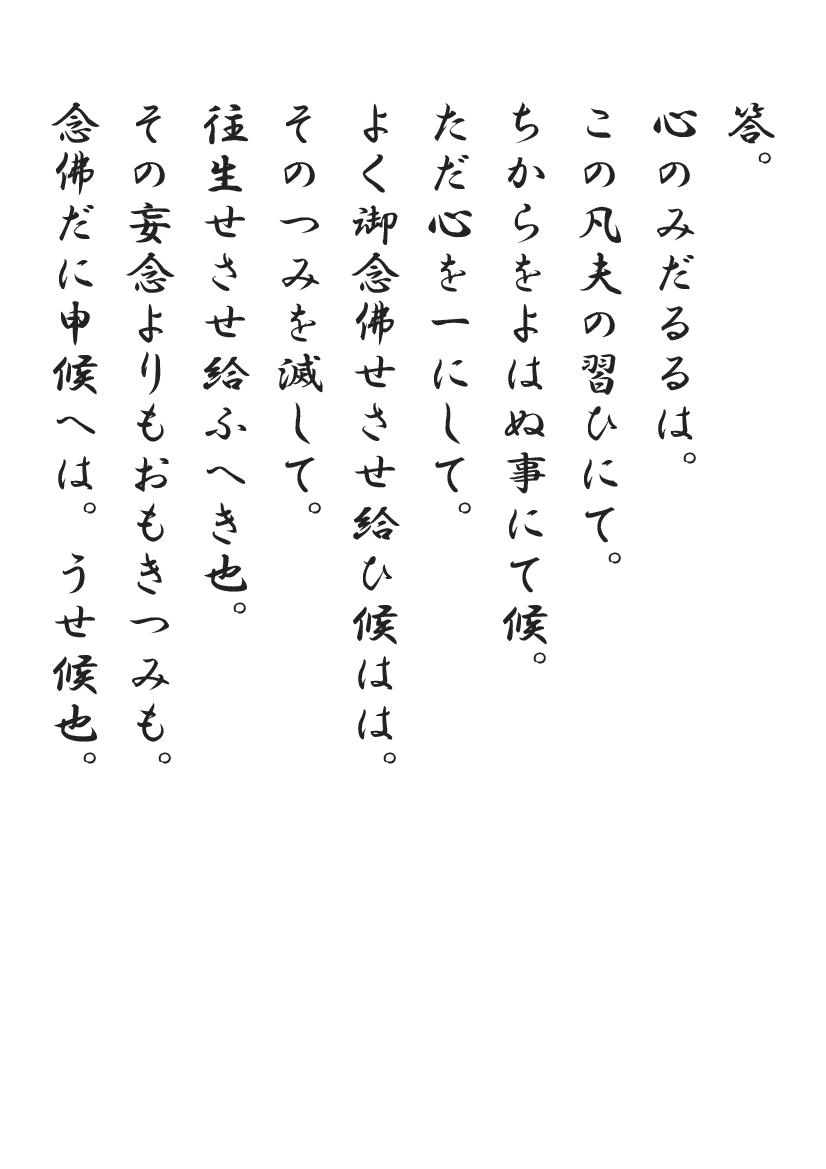 答。
心のみだるるは。
この凡夫の習ひにて。
ちからをよはぬ事にて候。
ただ心を一にして。
よく御念佛せさせ給ひ候はは。
そのつみを滅して。
往生せさせ給ふへき也。
その妄念よりもおもきつみも。
念佛だに申候へは。うせ候也。